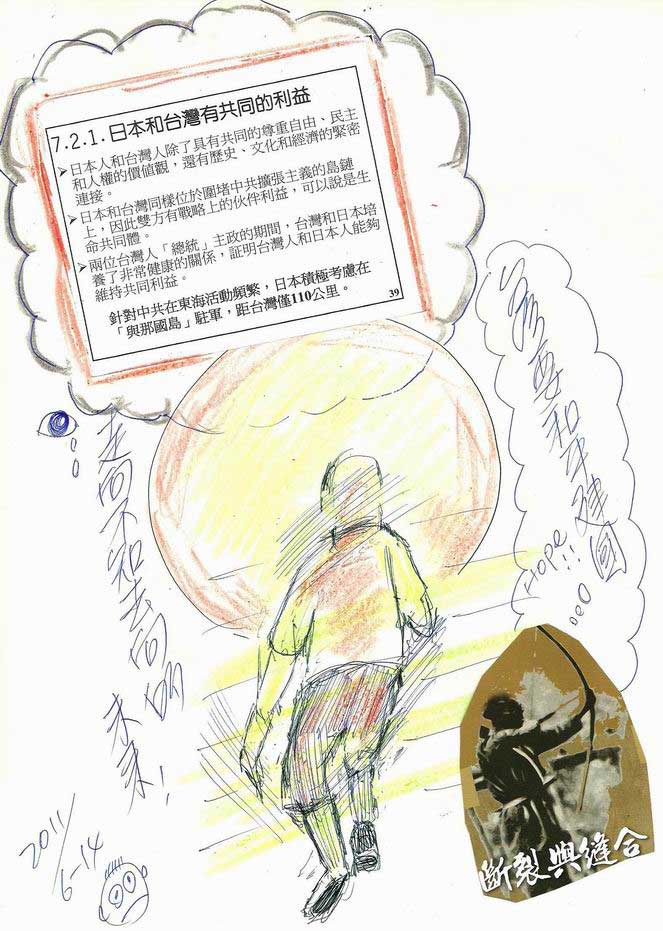 7.2.1. 日本和台灣有共同的利益
➢日本人和台灣人除了具有共同的尊重自由、民主
和人權的價值觀,還有歷史、文化和經濟的緊密
連接。
➢日本和台灣同樣位於圍堵中共擴張主義的島鏈
上,因此雙方有戰略上的伙伴利益,可以說是生
命共同體。
➢兩位台灣人「總統」主政的期間,台灣和日本培
養了非常健康的關係,証明台灣人和日本人能夠
維持共同利益。
針對中共在東海活動頻繁,日本積極考慮在
「與那國島」駐軍,距台灣僅110公里。
39
要和平建國
Hope!!
走向不知去向的
未來!
2011/6-14
斷裂與縫合